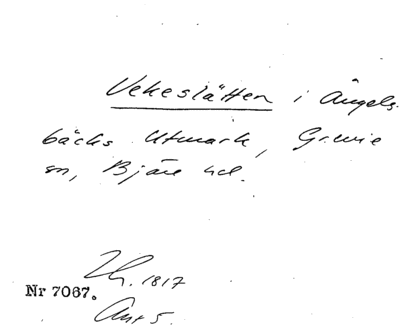 Vekeslätten i Ängels-
bäcks Utmark, Grevie
sn, Bjäre hd.
Lh. 1817
Nr 7067.
Ant 5.